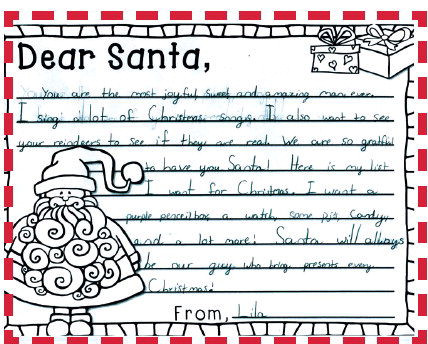 Dear Santa,
You are the most joyful, sweet, and amazing man ever.
I sing a lot of Christmas songs. I also want to see
your reindeers to see if they are real. We are so gratful
to have you Santa! Here is my list
I want for Christmas. I want a
purple pencil box, a watch, some pjs, candy,
and a lot more! Santa will always
be our guy who bring presents every
Christmas!
From, Lila